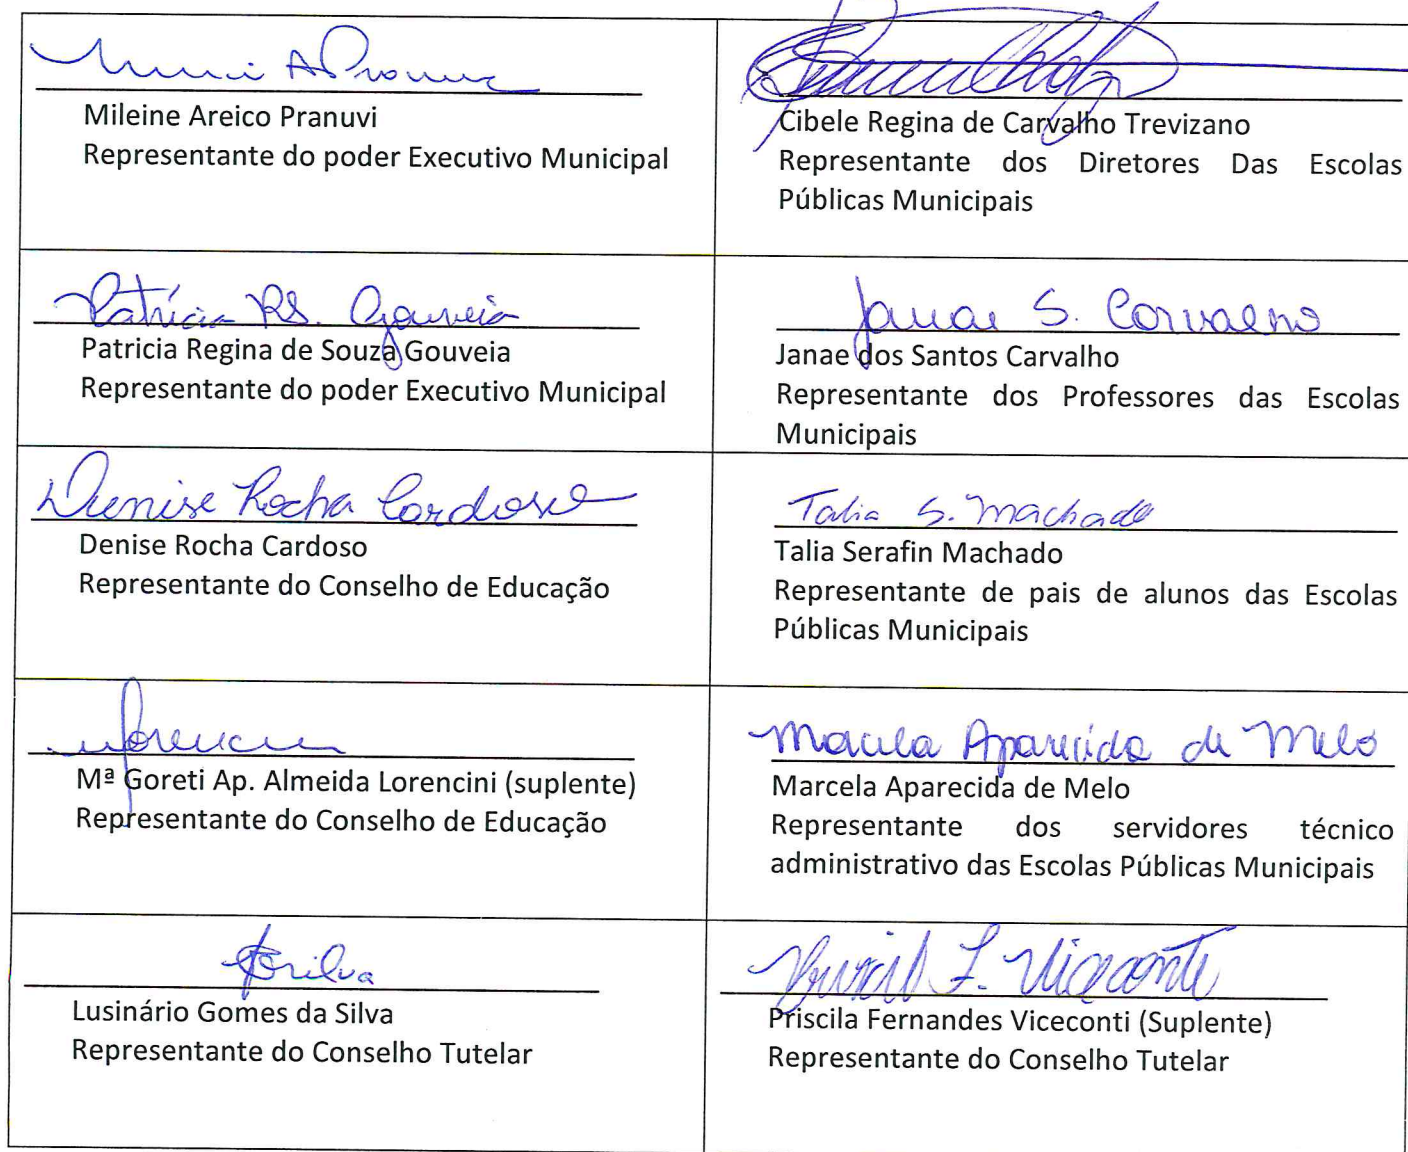 Mileine Areico Pranuvi
Representante do poder Executivo Municipal
Cibele Regina de Carvalho Trevizano
Representante dos Diretores Das Escolas
Públicas Municipais
Patrícia RS. Gouveia
Patricia Regina de Souza Gouveia
Representante do poder Executivo Municipal
Janae S. Carvalho
Janae dos Santos Carvalho
Representante dos Professores das Escolas
Municipais
Denise Rocha Cardoso
Denise Rocha Cardoso
Representante do Conselho de Educação
Talia S. Machado
Talia Serafin Machado
Representante de pais de alunos das Escolas
Públicas Municipais
Mª Goreti Ap. Almeida Lorencini (suplente)
Representante do Conselho de Educação
Marcela Aparecida de Melo
Marcela Aparecida de Melo
Representante dos servidores técnico
administrativo das Escolas Públicas Municipais
Lusinário Gomes da Silva
Representante do Conselho Tutelar
Priscila Fernandes Viceconti (Suplente)
Representante do Conselho Tutelar